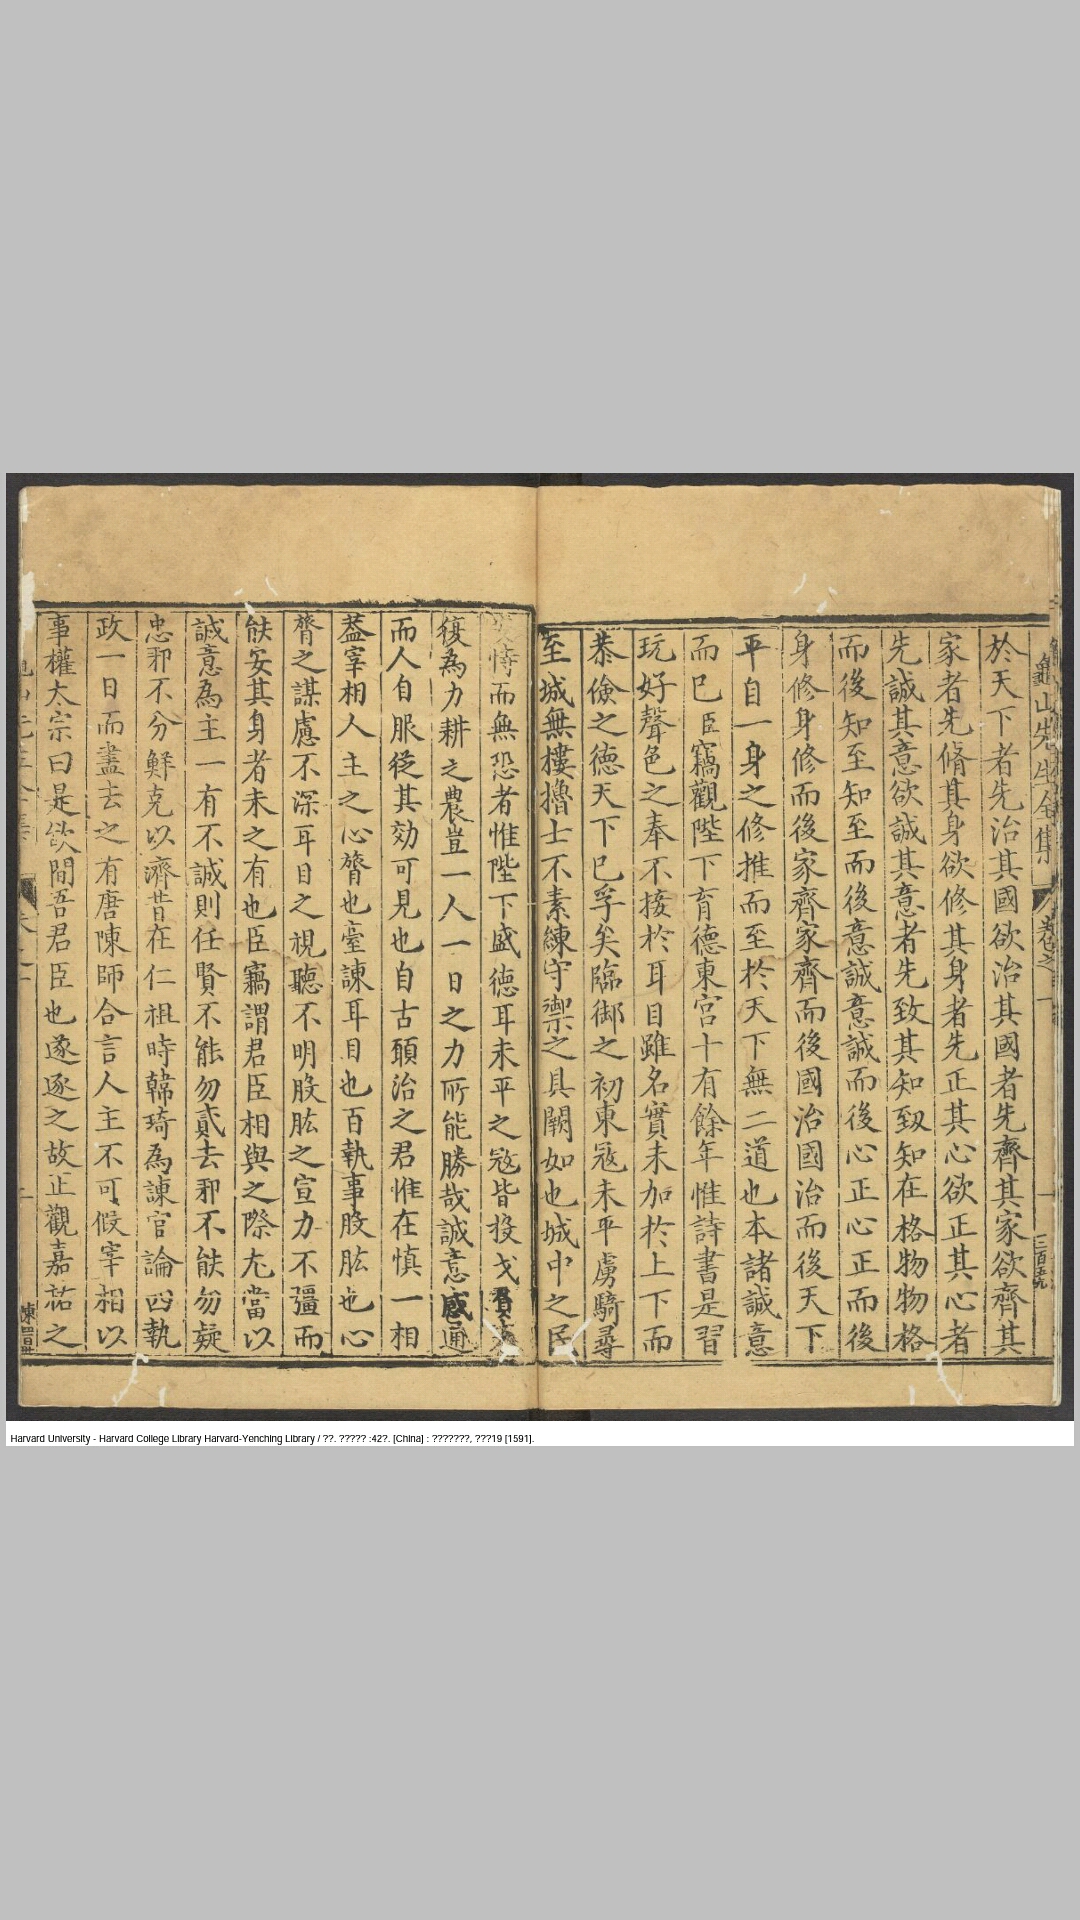 龜山先生全集
卷之一
於天下者先治其國欲治其國者先齊其家欲齊其
家者先脩其身欲修其身者先正其心欲正其心者
先誠其意欲誠其意者先致其知致知在格物物格
而後知至知至而後意誠意誠而後心正心正而後
身修身修而後家齊家齊而後國治國治而後天下
平自一身之修推而至於天下無二道也本諸誠意
而已臣竊觀陛下育德東宮十有餘年惟詩書是習
玩好聲色之奉不接於耳目雖名實未加於上下而
恭儉之德天下已孚矣臨御之初東寇未平虜騎尋
至城無樓櫓士不素練守禦之具闕如也城中之民
恃而無恐者惟陛下盛德耳未平之寇皆投戈
復為力耕之農豈一人一日之力所能勝哉誠意感通
而人自服從其効可見也自古願治之君惟在慎一相
葢宰相人主之心膂也臺諫耳目也百執事股肱也心
膂之謀慮不深耳目之視聽不明股肱之宣力不彊而
能安其身者未之有也臣竊謂君臣相與之際尤當以
誠意為主一有不誠則任賢不能勿貳去邪不能勿疑
忠邪不分鮮克以濟昔在仁祖時韓琦為諫官論四執
政一日而盡去之有唐陳師合言人主不可候宰相以
事權太宗曰是欲間吾君臣也遂逐之故正觀嘉祐之